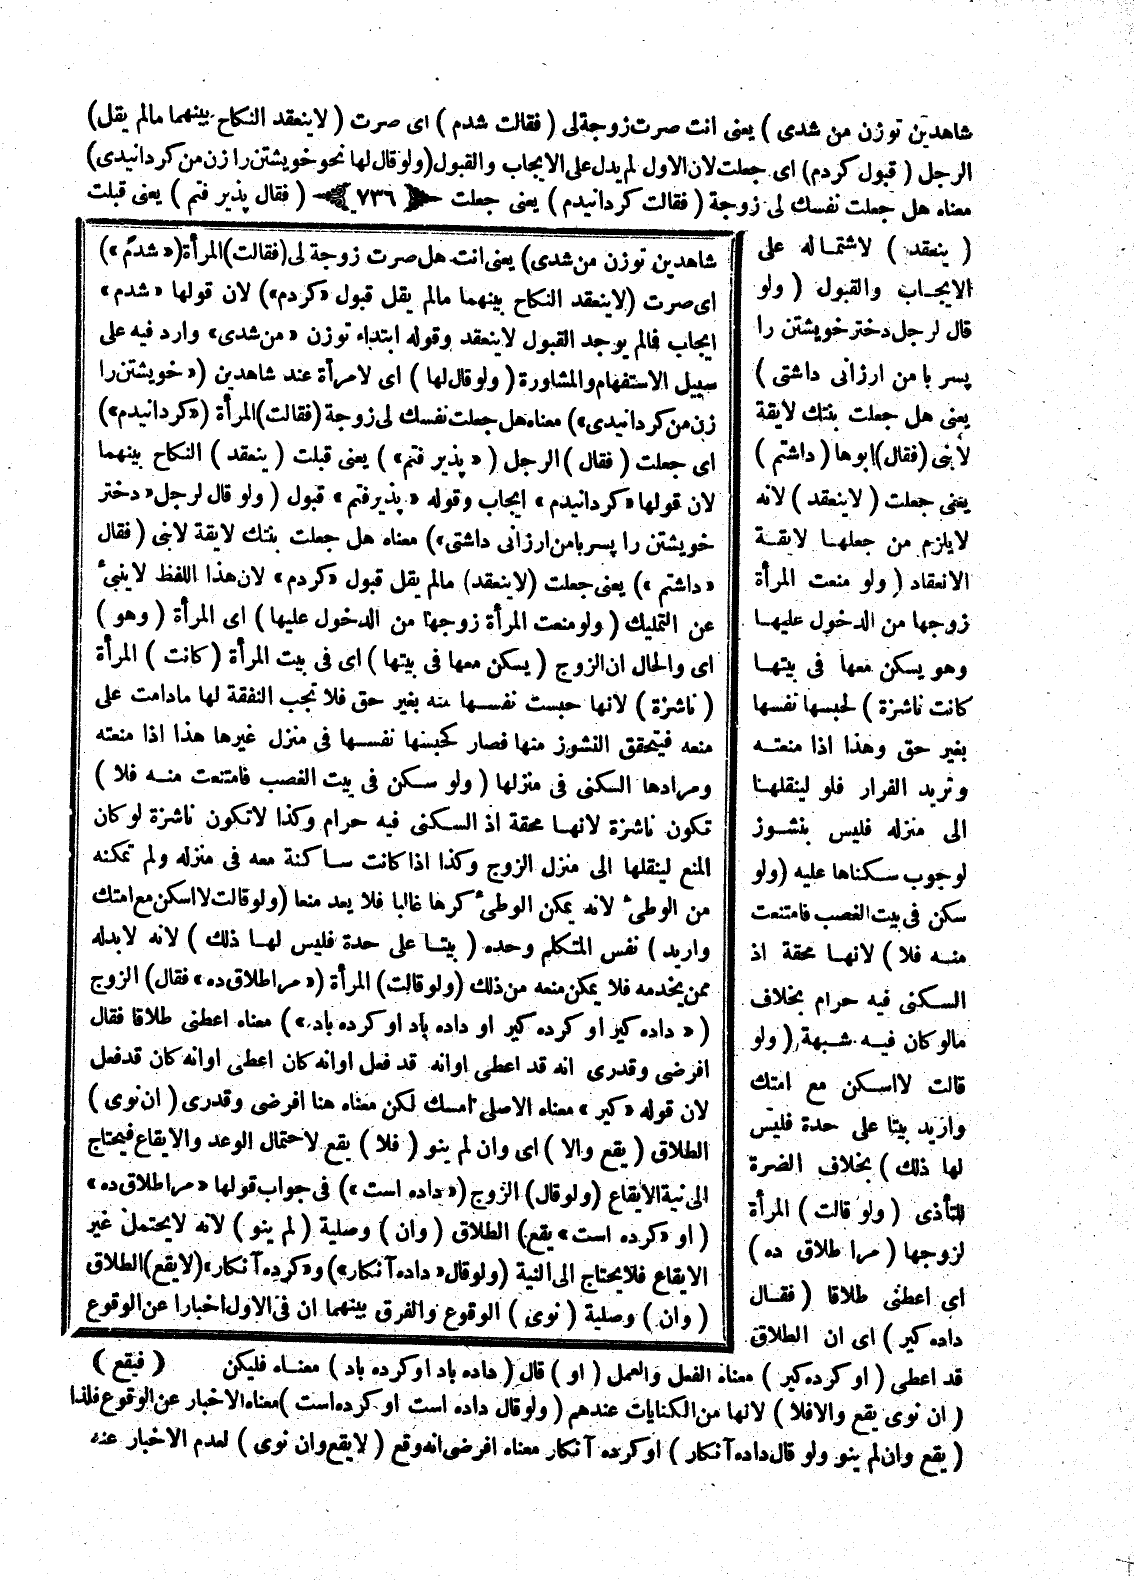 شاهدين توزن من شدى ) يعنى انت صرت زوجة لى ( فقالت شدم ) اى صرت ( لاينعقد النكاح بينهما مالم يقل )
الرجل ( قبول كردم ) اى جعلت لان الاول لم يدل على الايجاب والقبول ( ولو قال لها نحو خويشتن را زن من كردانيدى )
معناه هل جعلت نفسك لى زوجة ( فقالت كردانيدم ) يعنى جعلت ﴿ ٧٣٦ ﴾ ( فقال پذير فتم ) يعنى قبلت
( ينعقد ) لاشتماله على
الايجاب والقبول ( ولو
قال لرجل دختر خويشتن را
پسر با من ارزانى داشتى )
يعنى هل جعلت بنتك لايقة
لأبنى ( فقال ) ابوها ( داشتم )
يعنى جعلت ( لاينعقد ) لانه
لايلزم من جعلها لايقة
الانعقاد ( ولو منعت المرأة
زوجها من الدخول عليها
وهو يسكن معها فى بيتها
كانت ناشزة ) لحبسها نفسها
بغير حق وهذا اذا منعته
وتريد الفرار فلو لينقلها
الى منزله فليس بنشوز
لوجوب سكناها عليه ( ولو
سكن فى بيت الغصب فامتنعت
منه فلا ) لانها محقة اذ
السكنى فيه حرام بخلاف
مالو كان فيه شبهة ( ولو
قالت لااسكن مع امتك
واريد بيتا على حدة فليس
لها ذلك ) بخلاف الضرة
للتأذى ( ولو قالت ) المرأة
لزوجها ( مرا طلاق ده )
اى اعطنى طلاقا ( فقال
داده كير ) اى ان الطلاق
شاهدين توزن من شدى ) يعنى انت هل صرت زوجة لى ( فقالت ) المرأة ( « شدم » )
اى صرت ( لاينعقد النكاح بينهما مالم يقل قبول « كردم » ) لان قولها « شدم »
ايجاب فالم يوجد القبول لاينعقد وقوله ابتداء توزن « من شدى » وارد فيه على
سبيل الاستفهام والمشاورة ( ولو قال لها ) اى لامرأة عند شاهدين ( « خويشتن را
زن من كردانيدى » ) معناه هل جعلت نفسك لى زوجة ( فقالت ) المرأة ( « كردانيدم » )
اى جعلت ( فقال ) الرجل ( « پذير فتم » ) يعنى قبلت ( ينعقد ) النكاح بينهما
لان قولها « كردانيدم » ايجاب وقوله « پذير فتم » قبول ( ولو قال لرجل « دختر
خويشتن را پسر با من ارزانى داشتى » ) معناه هل جعلت بنتك لايقة لابنى ( فقال
« داشتم » ) يعنى جعلت ( لاينعقد ) مالم يقل قبول « كردم » لان هذا اللفظ لاينبئ
عن التمليك ( ولو منعت المرأة زوجها من الدخول عليها ) اى المرأة ( وهو )
اى والحال ان الزوج ( يسكن معها فى بيتها ) اى فى بيت المرأة ( كانت ) المرأة
( ناشزة ) لانها حبست نفسها منه بغير حق فلا تجب النفقة لها مادامت على
منعه فيتحقق النشوز منها فصار كحبسها نفسها فى منزل غيرها هذا اذا منعته
ومرادها السكنى فى منزلها ( ولو سكن فى بيت الغصب فامتنعت منه فلا )
تكون ناشزة لانها محقة اذ السكنى فيه حرام وكذا لاتكون ناشزة لو كان
المنع لينقلها الى منزل الزوج وكذا اذا كانت ساكنة معه فى منزله ولم تمكنه
من الوطئ لانه يمكن الوطئ كرها غالبا فلا يعد منعا ( ولو قالت لااسكن مع امتك
واريد ) نفس المتكلم وحده ( بيتا على حدة فليس لها ذلك ) لانه لابدله
ممن يخدمه فلا يمكن منعه من ذلك ( ولو قالت ) المرأة ( « مرا طلاق ده » فقال ) الزوج
( « داده كير او كرده كير او داده باد او كرده باد » ) معناه اعطنى طلاقا فقال
افرضى وقدرى انه قد اعطى اوانه قد فعل اوانه كان اعطى اوانه كان قد فعل
لان قوله « كير » معناه الاصلى امسك لكن معناه هنا افرضى وقدرى ( ان نوى )
الطلاق ( يقع والا ) اى وان لم ينو ( فلا ) يقع لاحتمال الوعد والايقاع فيحتاج
الى نية الايقاع ( ولو قال ) الزوج ( « داده است » ) فى جواب قولها « مرا طلاق ده »
( او « كرده است » يقع ) الطلاق ( وان ) وصلية ( لم ينو ) لانه لايحتمل غير
الايقاع فلا يحتاج الى النية ( ولو قال « داده آنكار » ) و « كرده آنكار » ( لايقع ) الطلاق
( وان ) وصلية ( نوى ) الوقوع والفرق بينهما ان فى الاول اخبارا عن الوقوع
قد اعطى ( او كرده كير ) معناه الفعل والعمل ( او ) قال ( داده باد او كرده باد ) معناه فليكن ( فيقع )
( ان نوى يقع والا فلا ) لانها من الكنايات عندهم ( ولو قال داده است او كرده است ) معناه الاخبار عن الوقوع فلذا
( يقع وان لم ينو ولو قال داده آنكار ) او كرده آنكار معناه افرضى انه وقع ( لايقع وان نوى ) لعدم الاخبار عنه